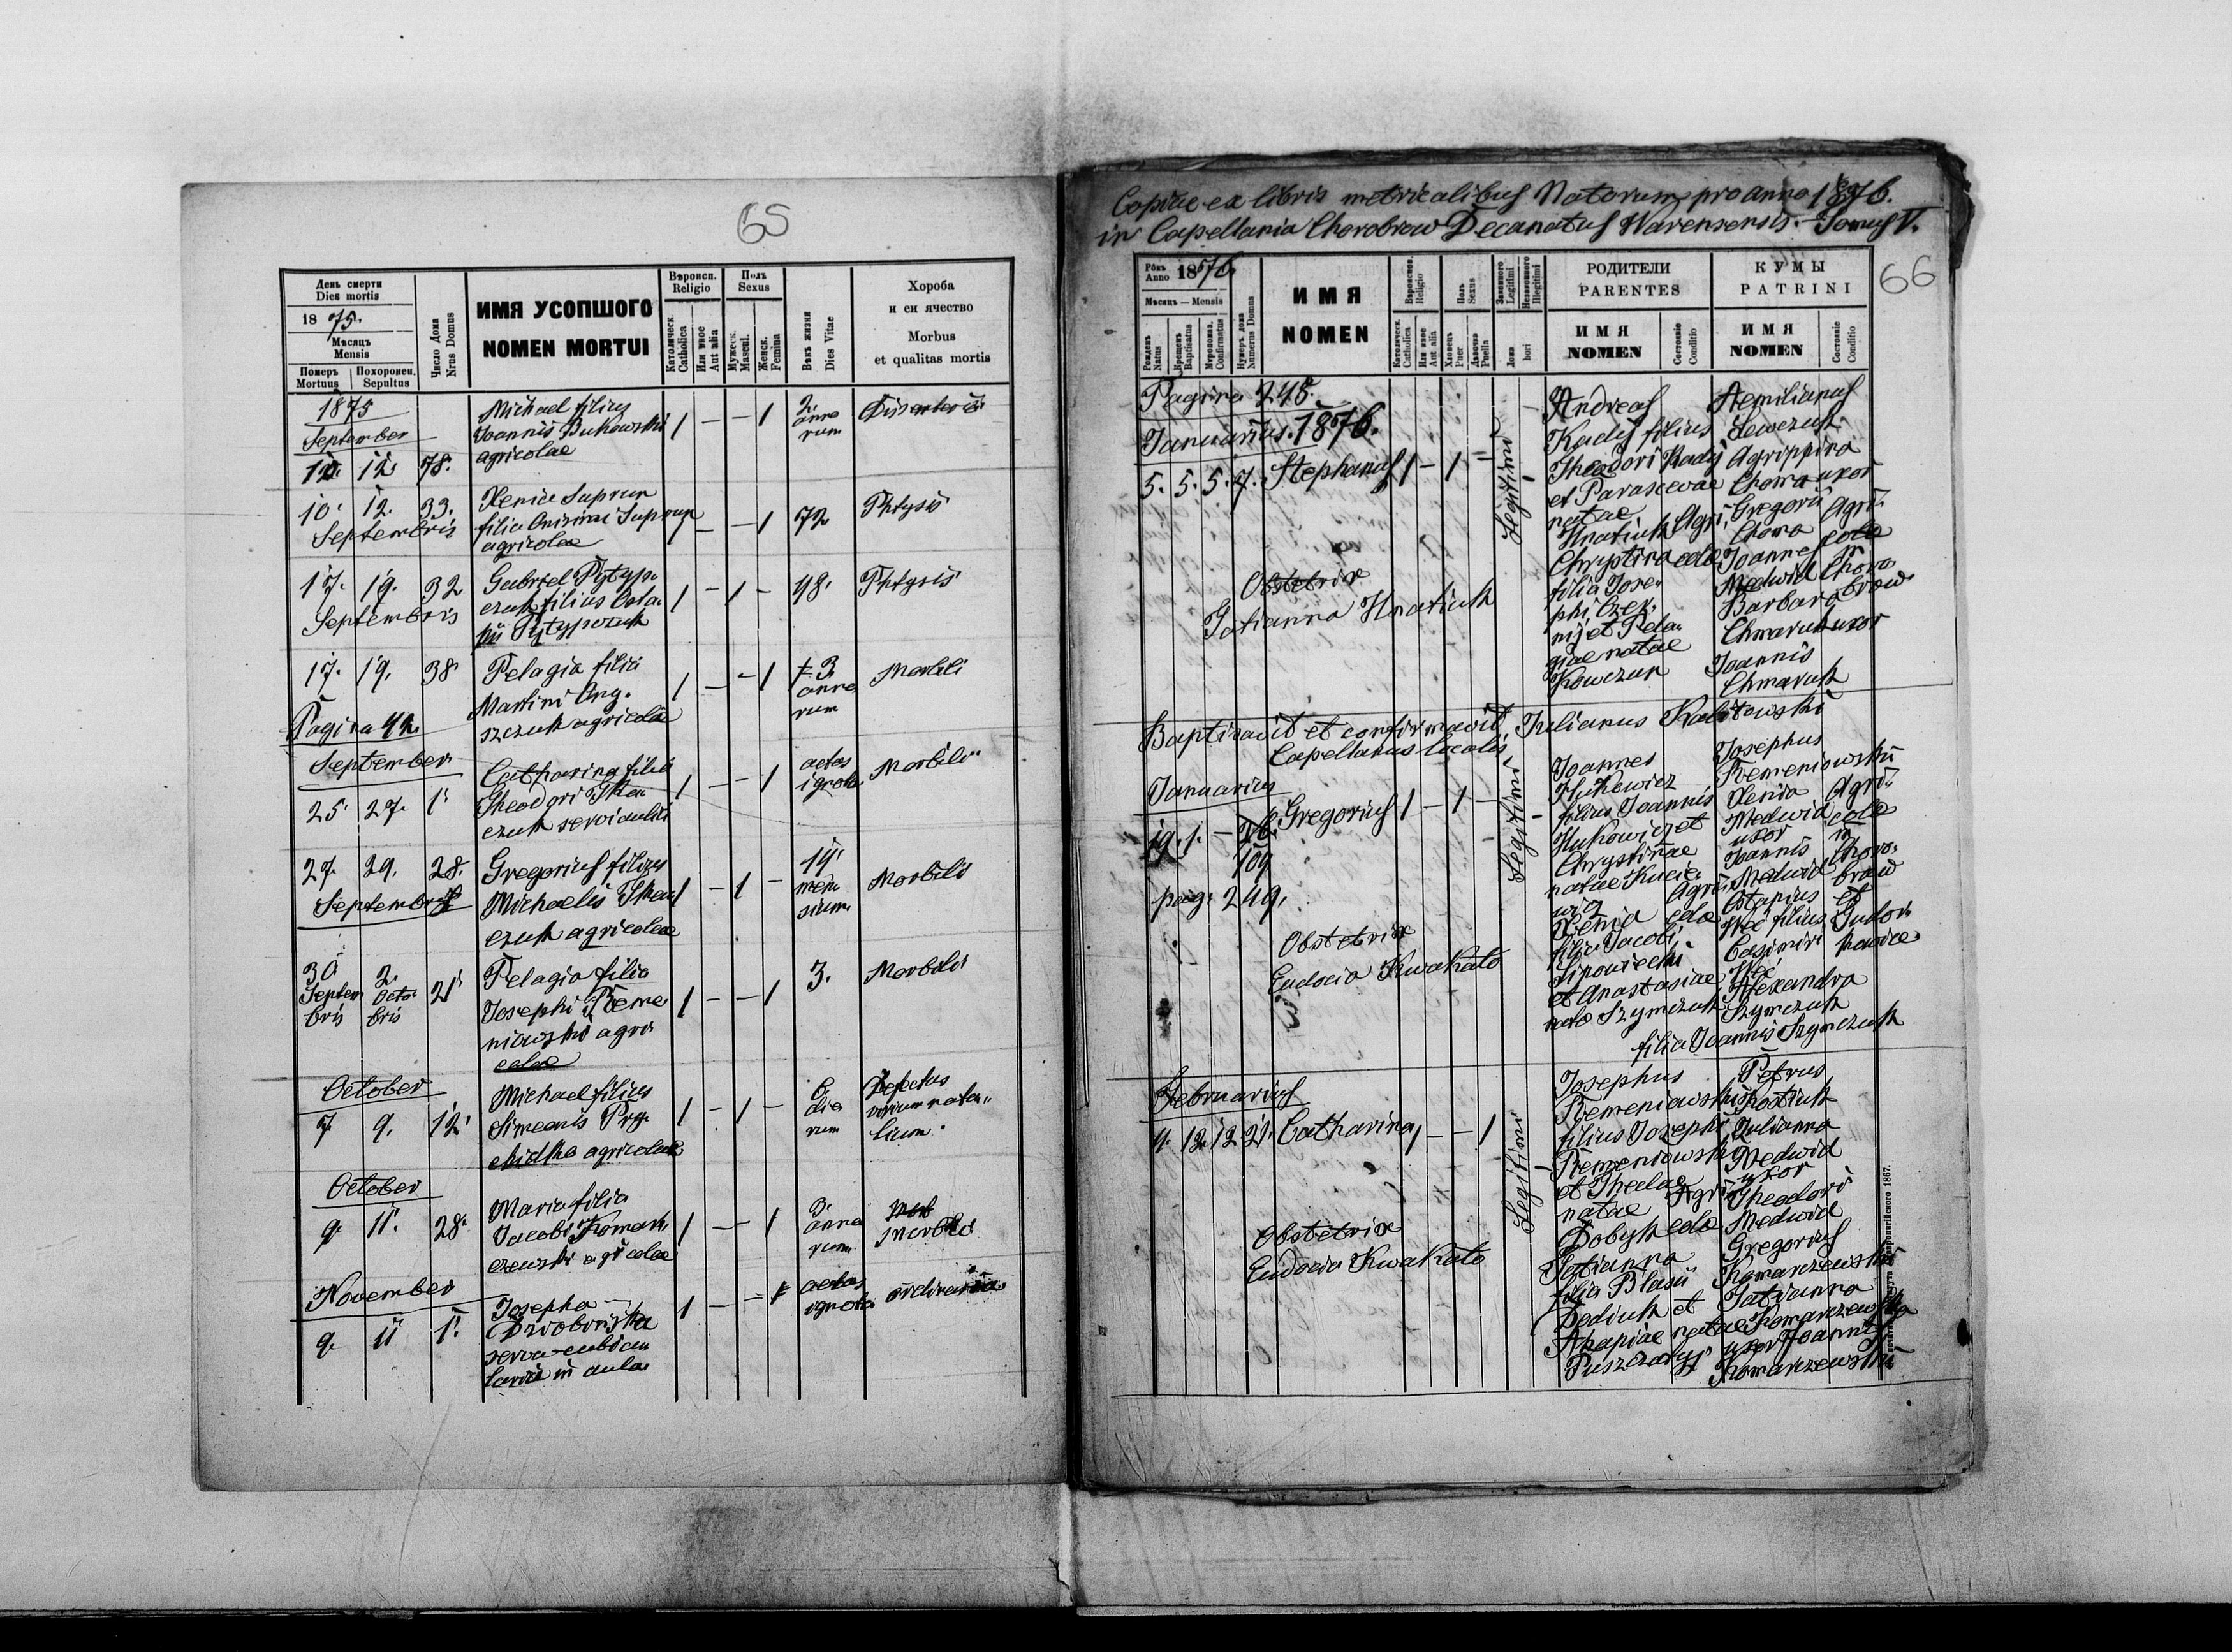 65
День смерти
Dies mortis
1875.
Мѣсяцъ
Mensis
Померъ
Mortuus
Похоронен.
Sepultus
Число Дома
Nrus Domus
ИМЯ УСОПШОГО
NOMEN MORTUI
Вѣроисп.
Religio
Католическ.
Catholica
Или иное
Aut alia
Полъ
Sexus
Мужеск.
Mascul.
Женск.
Femina
Вѣкъ жизни
Dies Vitae
Хороба
и еи ячество
Morbus
et qualitas mortis
1875
September
Michael filius
Joannis Bukowski
agricolae
12. 78. 1 – – 1
2. anno
rum
10. 12. 33.
Septembris
Xenia Suprun
filia Suprun
agricolae
1 – – 1 72 Phtysis
17. 19. 32
Septembris
Gabriel Pytyp.
czuk filius Osta.
pii Pytypczuk
1 – 1 – 48. Phtysis
17. 19. 38
Pelagia filia
Martini
szczuk agricolae
1 – – 1
3.
anno
rum
Morbili
Pagina
September
25. 27. 1.
Catharina filia
Theodori
czuk servi aulici
1 – – 1
aetas
ignota
Morbili
27. 29. 28.
Septembris
Gregorius filius
Michaelis
czuk agricolae
1 – 1 –
14
men
sium
Morbili
30
Septem
bris
2.
Octo
bris
21
Pelagia filia
Josephi Reme
niowski agri
colae
1 – – 1 3. Morbili
October
7 9. 12.
Michael filius
Simeonis Pry.
chidko agricolae
1 – 1 –
6
die
rum
Defectus
virium nata.
lium.
October
9. 11. 28.
Maria filia
Jacobi Komar.
czewski agricolae
1 – – 1
3.
anno
rum
Morbili
November
9. 11 1.
Josepha
serva cubicu
laria in aula
1 – – 1
aetas
ignota
ordinaria
Copiae ex libris metricalibus Natorum pro anno 1876.
in Capellania Chorobrow Decanatus Warensensis. Tomus V.
66
Рôкъ
Anno 1876
Мѣсяцъ — Mensis
Рожденъ
Natus
Крещенъ
Baptisatus
Муропомаз.
Confirmatus
Нумеръ дома
Numerus Domus
ИМЯ
NOMEN
Вѣроиспов.
Religio
Католическ.
Catholica
Или иное
Aut alia
Полъ
Sexus
Хлопецъ
Puer
Дѣвочка
Puella
Законного
Legitimi
Незаконного
Illegitimi
Ложа
bori
РОДИТЕЛИ
PARENTES
ИМЯ
NOMEN
Состояніе
Conditio
КУМЫ
PATRINI
ИМЯ
NOMEN
Состояніе
Conditio
Pagina 245.
Januarius. 1876.
5. 5. 5. 7. Stephanus 1 – 1 –
Legitimi
Andreas
Kadij filius
Theodori Kadij
et Parascevae
natae
Hnatiuk
Chrystina
filia Jose.
phi Czer.
nij et Pela.
giae natae
Kowczun
Agri.
cola
Aemilianus
Lewczuk
Agrippina
Choma uxor
Gregorii
Choma
Joannes
Medwid
Barbara
Chmaruk uxor
Joannis
Chmaruk
Agri.
cola
in
Choro
brow
Obstetrix
Tatianna Hnatiuk
Baptisavit et confirmavit, Julianus
Capellanus localis
Januarius
19. 1. –
109
Gregorius 1 – 1 –
pag. 249.
Legitimi
Joannes
Hukewicz
filius Joannis
Hukowicz et
Chrystinae
natae
Xenia
filia Jacobi
Lipowiecki
et Anastasiae
nata Szymczuk
Agri.
cola
Josephus
Remeniowski
Xenia
Medwid
uxor
Joannis
Medwid
Ostapius
filius
Casimiri
Alexandra
Szymczuk
filia Joannis Szymczuk
Agri.
cola
in
Choro.
brow
et
Obstetrix
Eudocia Kwakato
Februarius
9. 12. 12. 21. Catharina 1 – – 1
Legitimi
Josephus
Remeniowski
filius Josephi
Remeniowski
et Theclae
natae
Dobysh
Tatianna
filia Blasii
Dediuk et
Ahapiae natae
Agri.
cola
Petrus
Kostiuk
Julianna
Medwid
uxor
Theodori
Medwid
Gregorius
Komarczewski
Tatianna
Komarczewska
uxor Joannis
Komarczewski
Obstetrix
Eudocia Kwakato